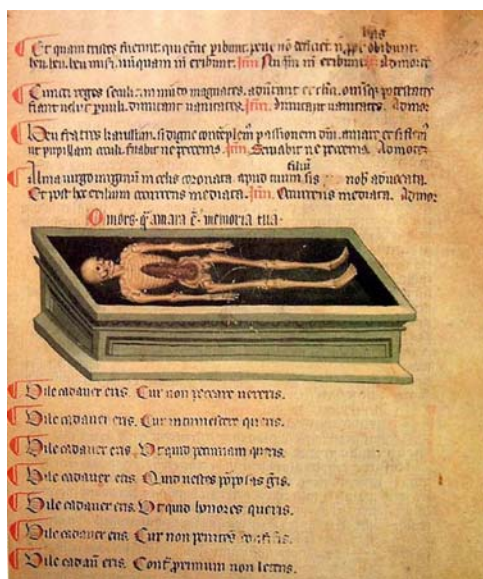 has
Et quam tristes fuerint qui eterne peribunt pene nõ deficient obibunt.
heu heu heu miseri nũquam exibunt. Itm̃ exibunt. Ad mortẽ
Cuncti reges seculi et in mũdo magnates aduertant et clerici omĩsq; potestates
fiant uelut paruuli dimitant uanitates. Itm̃. Dimitant uanitates. Ad mor
Heu fratres karissimi si digne contẽplem passionem dñi amare et si flem
ut pupillam oculi seruabit ne peccem. Itm̃. Seruabit ne peccem. Ad mortẽ
filiũ
Alma uirgo uirginũ in celis coronata apud tuum sis nob aduocata.
Et post hoc exilium occurrens mediata. Itm̃. Occurrens mediata. Ad mor
O mors q̃ amara ẽ memoria tua.
Vile cadauer eris. Cur non peccare uereris.
Vile cadauer eris. Cur intumescere queris.
Vile cadauer eris. Vt quid peccuniam queris.
Vile cadauer eris. Quid uestes põposas g̃is.
Vile cadauer eris. Vt quid honores queris.
Vile cadauer eris. Cur non penites
Vile cadaũ eris. Cont̃ proximum non leteris.